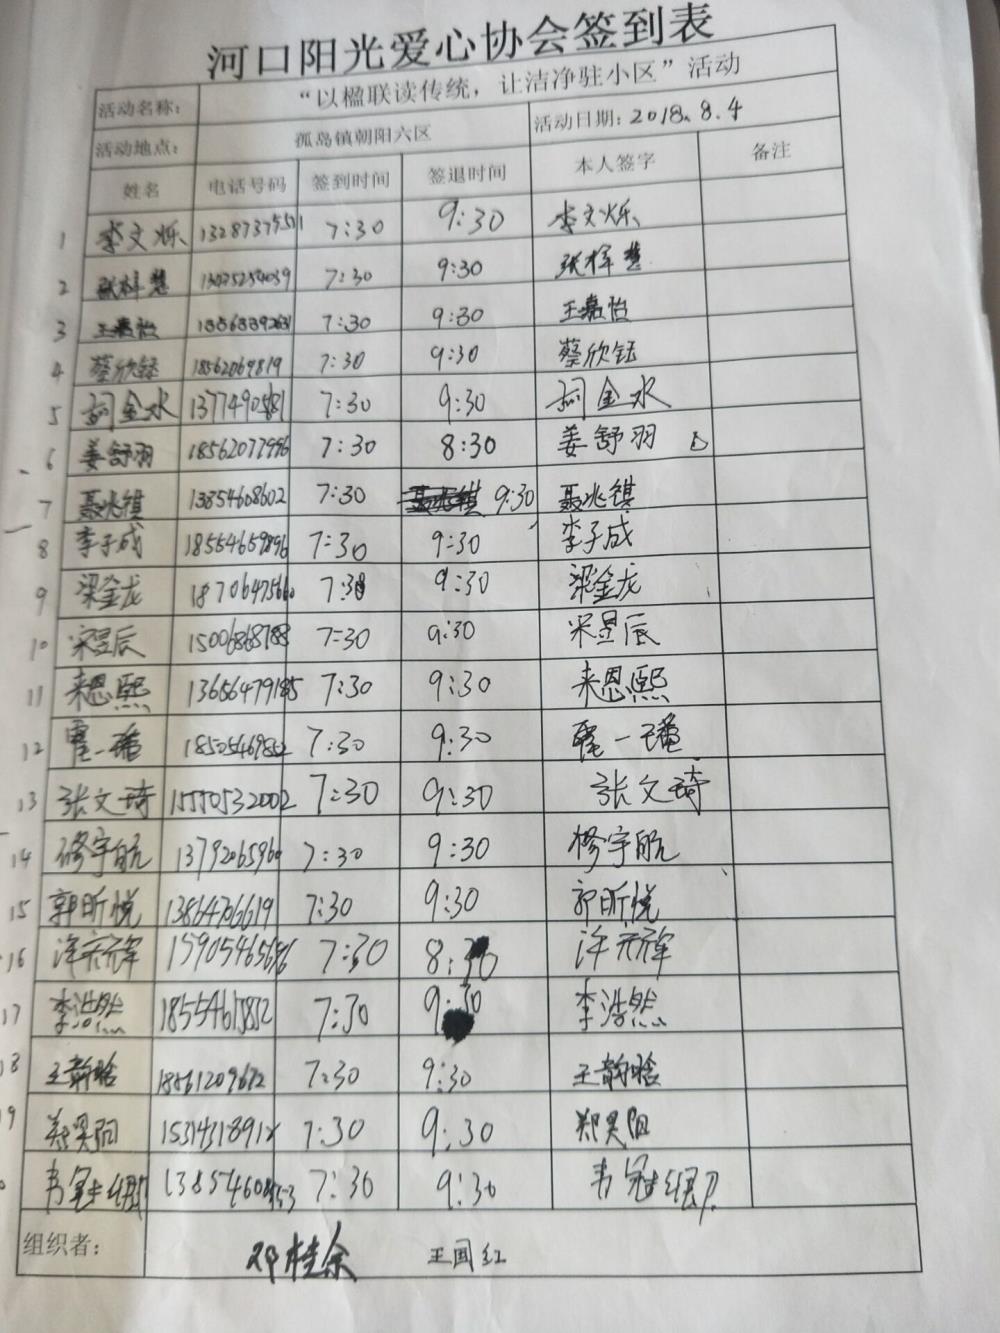 河口阳光爱心协会签到表
活动名称： “以楹联读传统，让洁净驻小区”活动
活动地点： 孤岛镇朝阳六区 活动日期：2018.8.4
姓名 电话号码 签到时间 签退时间 本人签字 备注
1 李文烁 7:30 9:30 李文烁
2 张梓慧 7:30 9:30 张梓慧
3 王嘉怡 7:30 9:30 王嘉怡
4 蔡欣钰 18562069819 7:30 9:30 蔡欣钰
5 金水 7:30 9:30 金水
6 姜舒羽 18562077996 7:30 8:30 姜舒羽
7 聂兆镇 13854608602 7:30 9:30 聂兆镇
8 李子成 7:30 9:30 李子成
9 梁金龙 7:30 9:30 梁金龙
10 宋昱辰 15006868788 7:30 9:30 宋昱辰
11 来恩熙 13656479185 7:30 9:30 来恩熙
12 7:30 9:30
13 张文琦 15550532002 7:30 9:30 张文琦
14 修宇航 13792065960 7:30 9:30 修宇航
15 郭昕悦 13864706619 7:30 9:30 郭昕悦
16 15905465686 7:30 8:30
17 李浩然 18554615852 7:30 9:30 李浩然
18 王韵晗 18561209672 7:30 9:30 王韵晗
19 郑昊阳 7:30 9:30 郑昊阳
7:30 9:30
组织者： 邓桂余 王国红